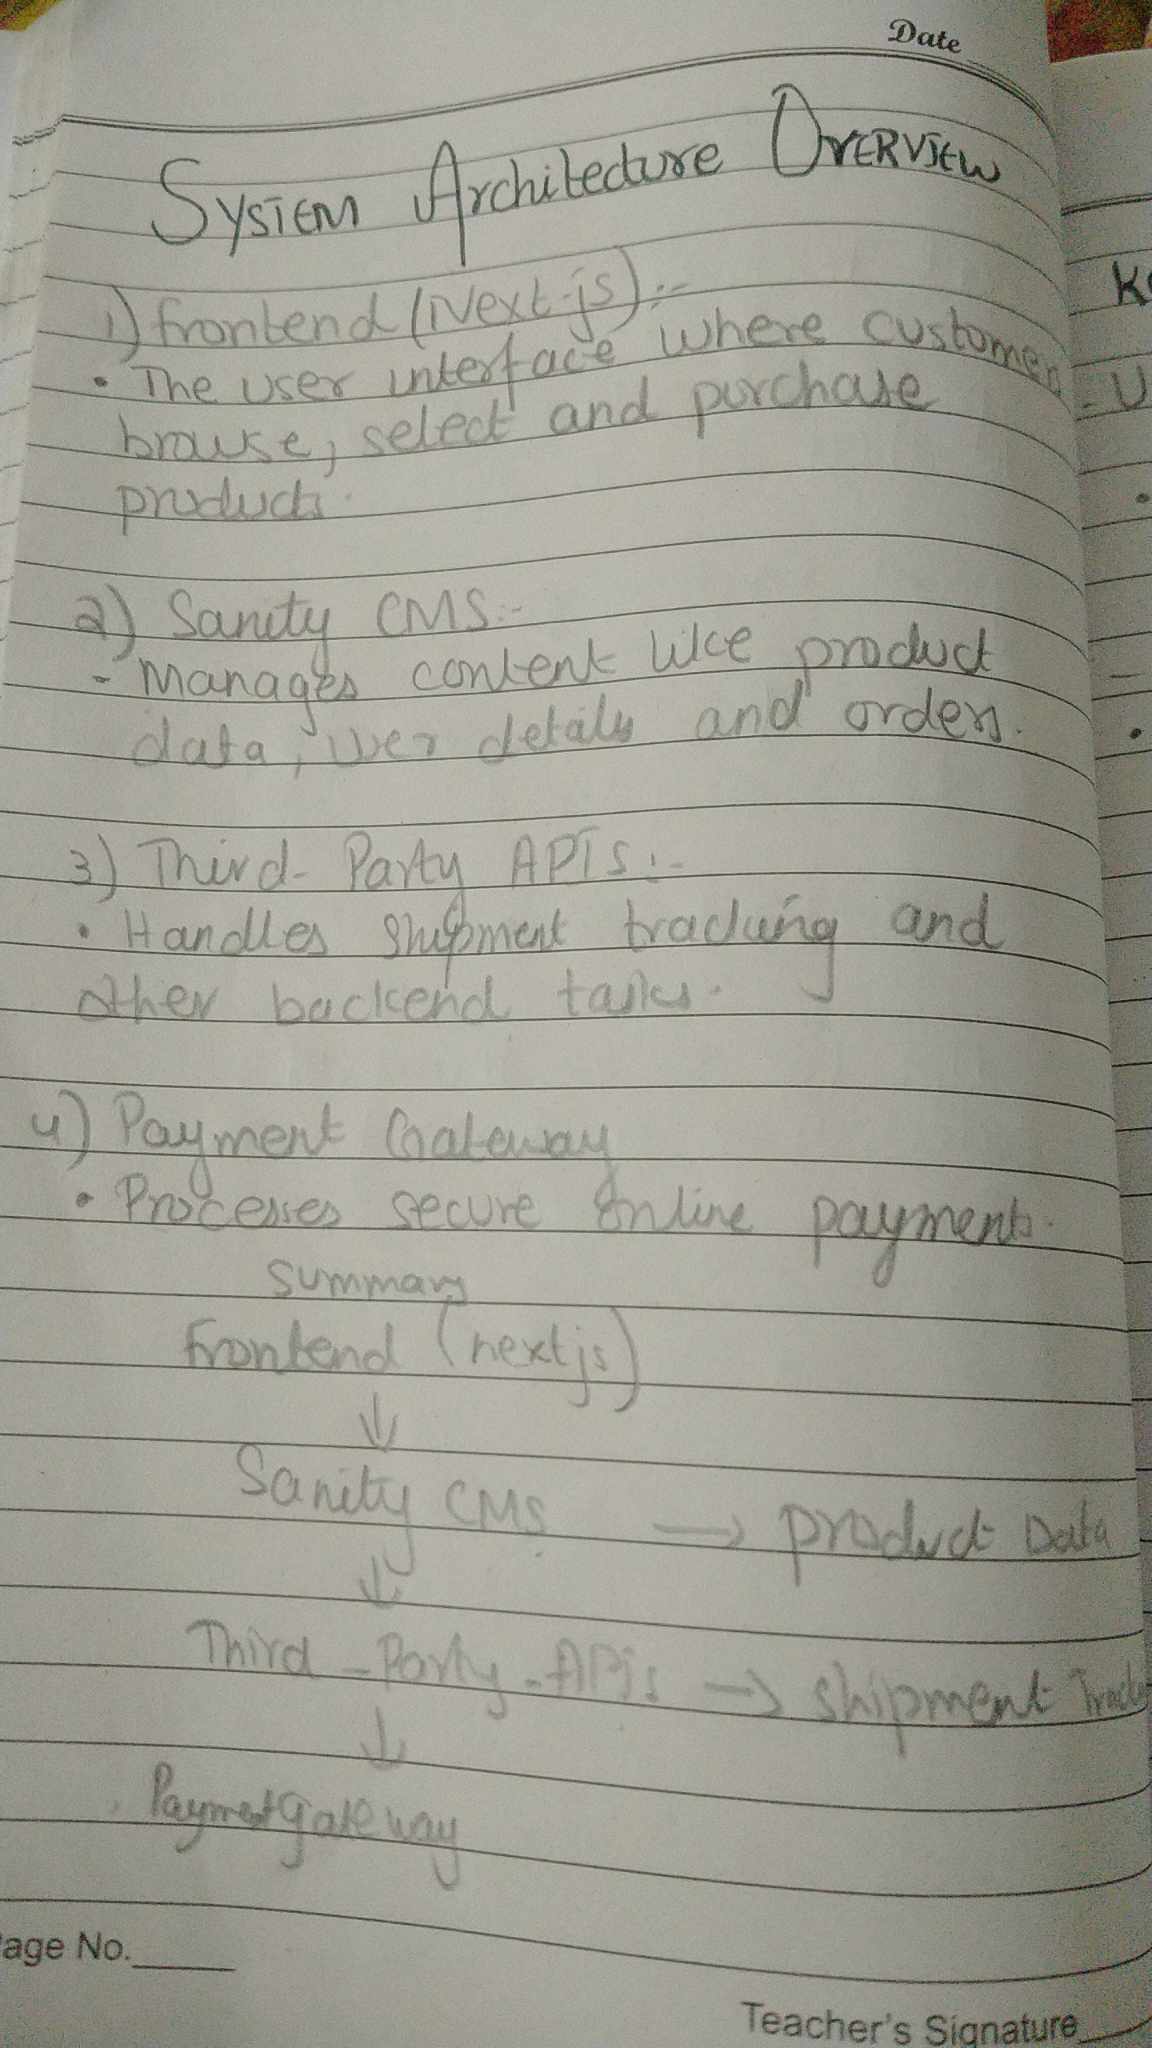 Date
SYSTEM Architecture OVERVIEW
1) frontend (Next-js):-
• The user interface where customers
browse, select and purchase
products.
2) Sanity CMS:-
- Manages content like product
data, user details and orders.
3) Third-Party APIs:-
• Handles shipment tracking and
other backend tasks.
4) Payment Gateway
• Processes secure online payments.
Summary
frontend (nextjs)
↓
Sanity CMS → product Data
↓
Third-Party-APIs → shipment
↓
Payment gateway
age No.
Teacher's Signature
K
U